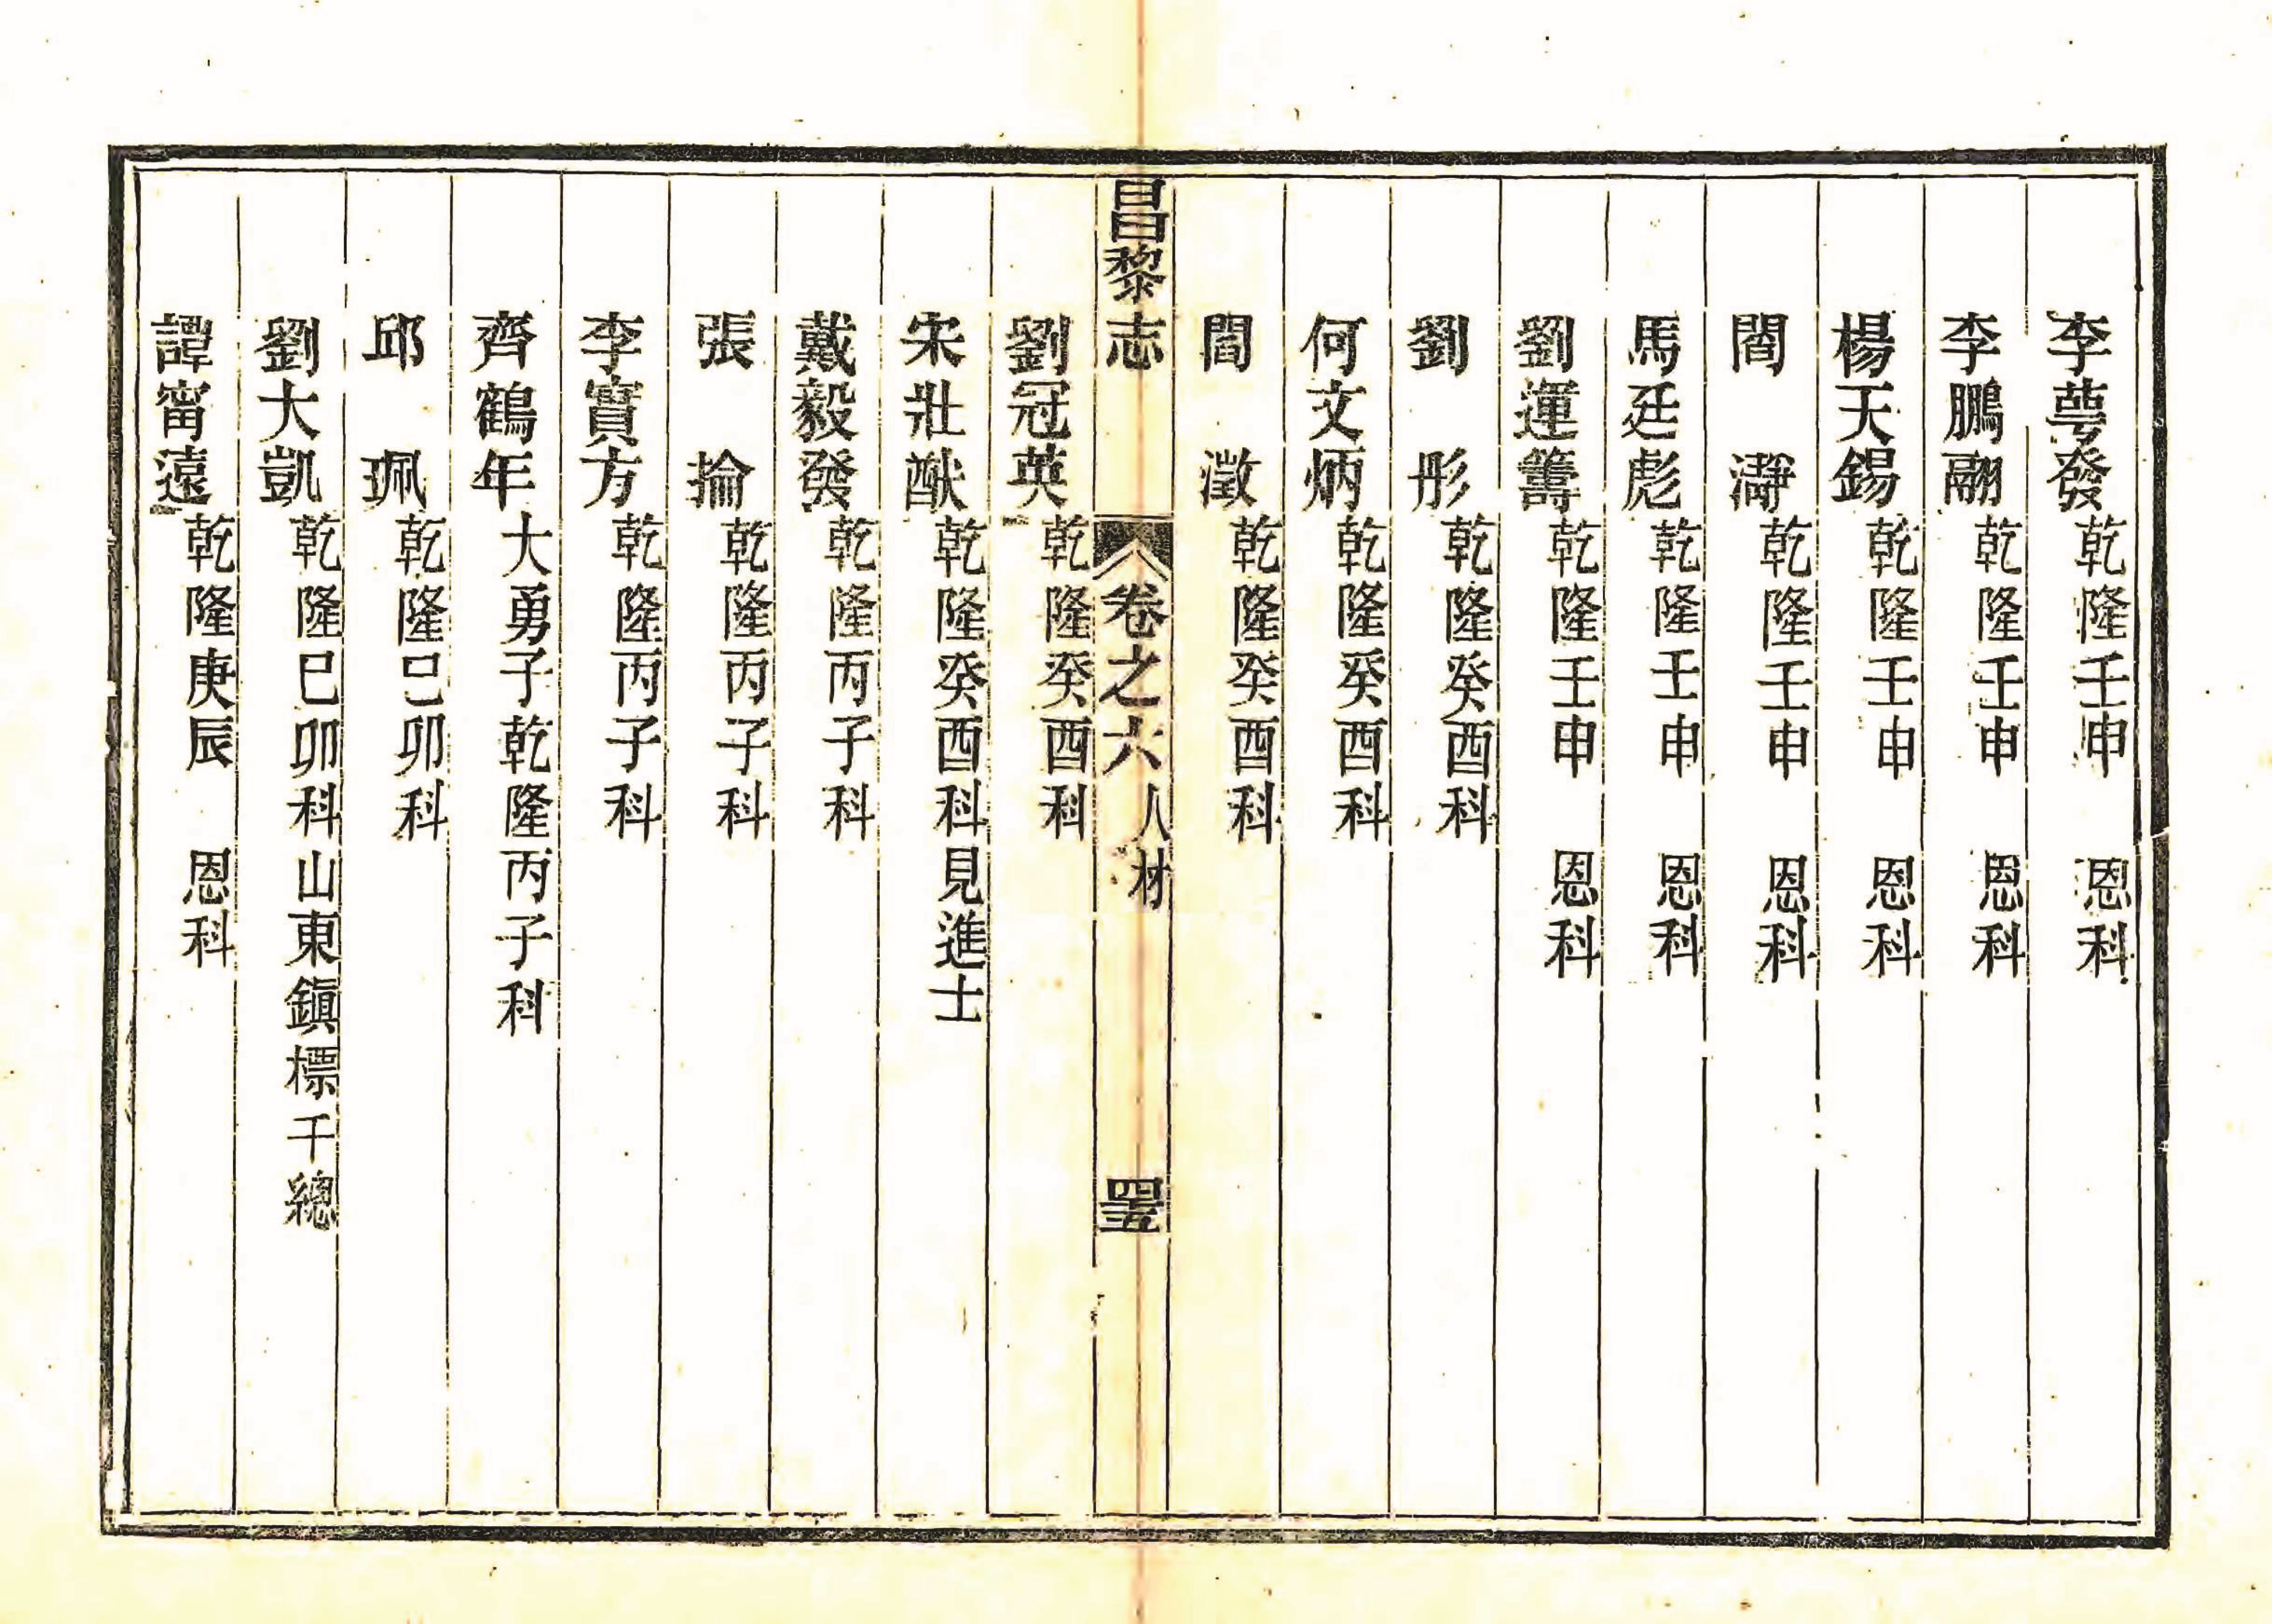 李萼發乾隆壬申 恩科
李鵬翮乾隆壬申 恩科
楊天錫乾隆壬申 恩科
閻 瀞乾隆壬申 恩科
馬廷彪乾隆壬申 恩科
劉運籌乾隆壬申 恩科
劉 彤乾隆癸酉科
何文炳乾隆癸酉科
閻 澂乾隆癸酉科
昌黎志 卷之六 人材 四五
劉冠英乾隆癸酉科
宋壯猷乾隆癸酉科見進士
戴毅發乾隆丙子科
張 掄乾隆丙子科
李實方乾隆丙子科
齊鶴年大勇子乾隆丙子科
邱 珮乾隆己卯科
劉大凱乾隆己卯科山東鎭標千總
譚甯遠乾隆庚辰 恩科